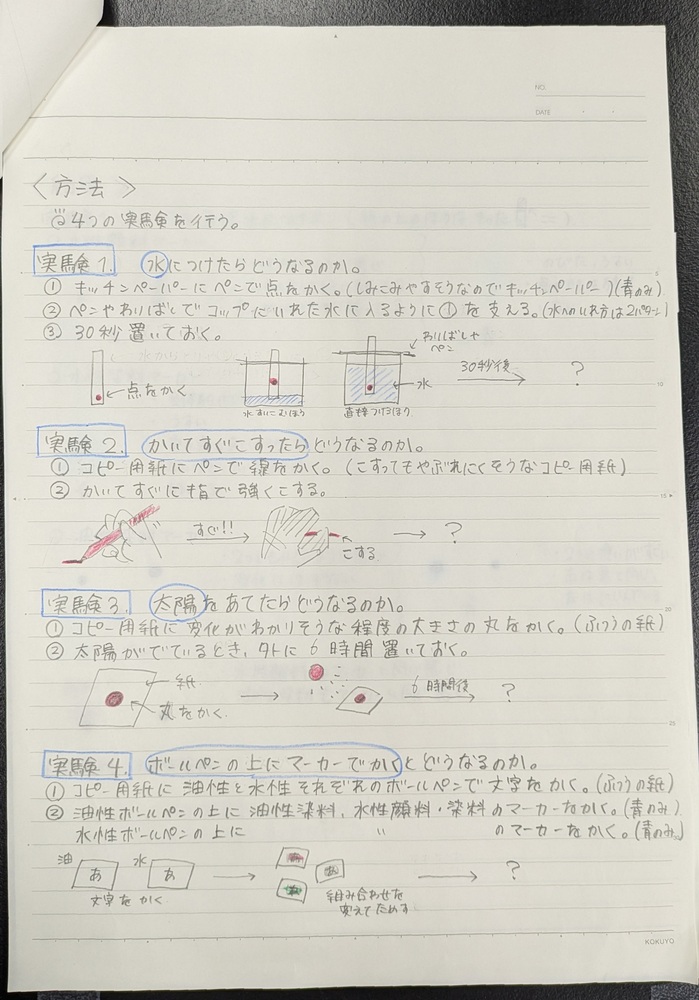 NO.
DATE
〈方法〉
4つの実験を行う。
実験1. 水につけたらどうなるのか。
① キッチンペーパーにペンで点をかく。(しみこみやすそうなのでキッチンペーパー)(青のみ)
② ペンやわりばしでコップにいれた水に入るように①を支える。(水へのいれ方は2パターン)
③ 30秒置いておく。
点をかく
水すいこむほう
直接つけるほう
わりばしや
ペン
水
30秒後
?
実験2. かいてすぐこすったらどうなるのか。
① コピー用紙にペンで線をかく。(こすってもやぶれにくそうなコピー用紙)
② かいてすぐに指で強くこする。
すぐ!!
こする
?
実験3. 太陽をあてたらどうなるのか。
① コピー用紙に変化がわかりそうな程度の大きさの丸をかく。(ふつうの紙)
② 太陽がでているとき、外に6時間置いておく。
紙
丸をかく
6時間後
?
実験4. ボールペンの上にマーカーでかくとどうなるのか。
① コピー用紙に油性と水性それぞれのボールペンで文字をかく。(ふつうの紙)
② 油性ボールペンの上に油性染料、水性顔料・染料のマーカーをかく。(青のみ)
水性ボールペンの上に 〃 のマーカーをかく。(青のみ)
油 あ 水 あ
文字をかく
あ
あ
あ
組み合わせを
変えてためす
?
5
10
15
20
25
KOKUYO